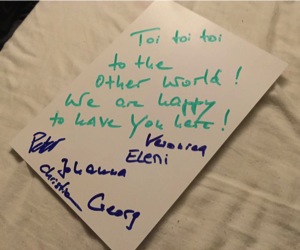 Toi toi toi
to the
Other World!
We are happy
to have You here!
Peter
Veronica
Johanna
Eleni
Christian
Georg